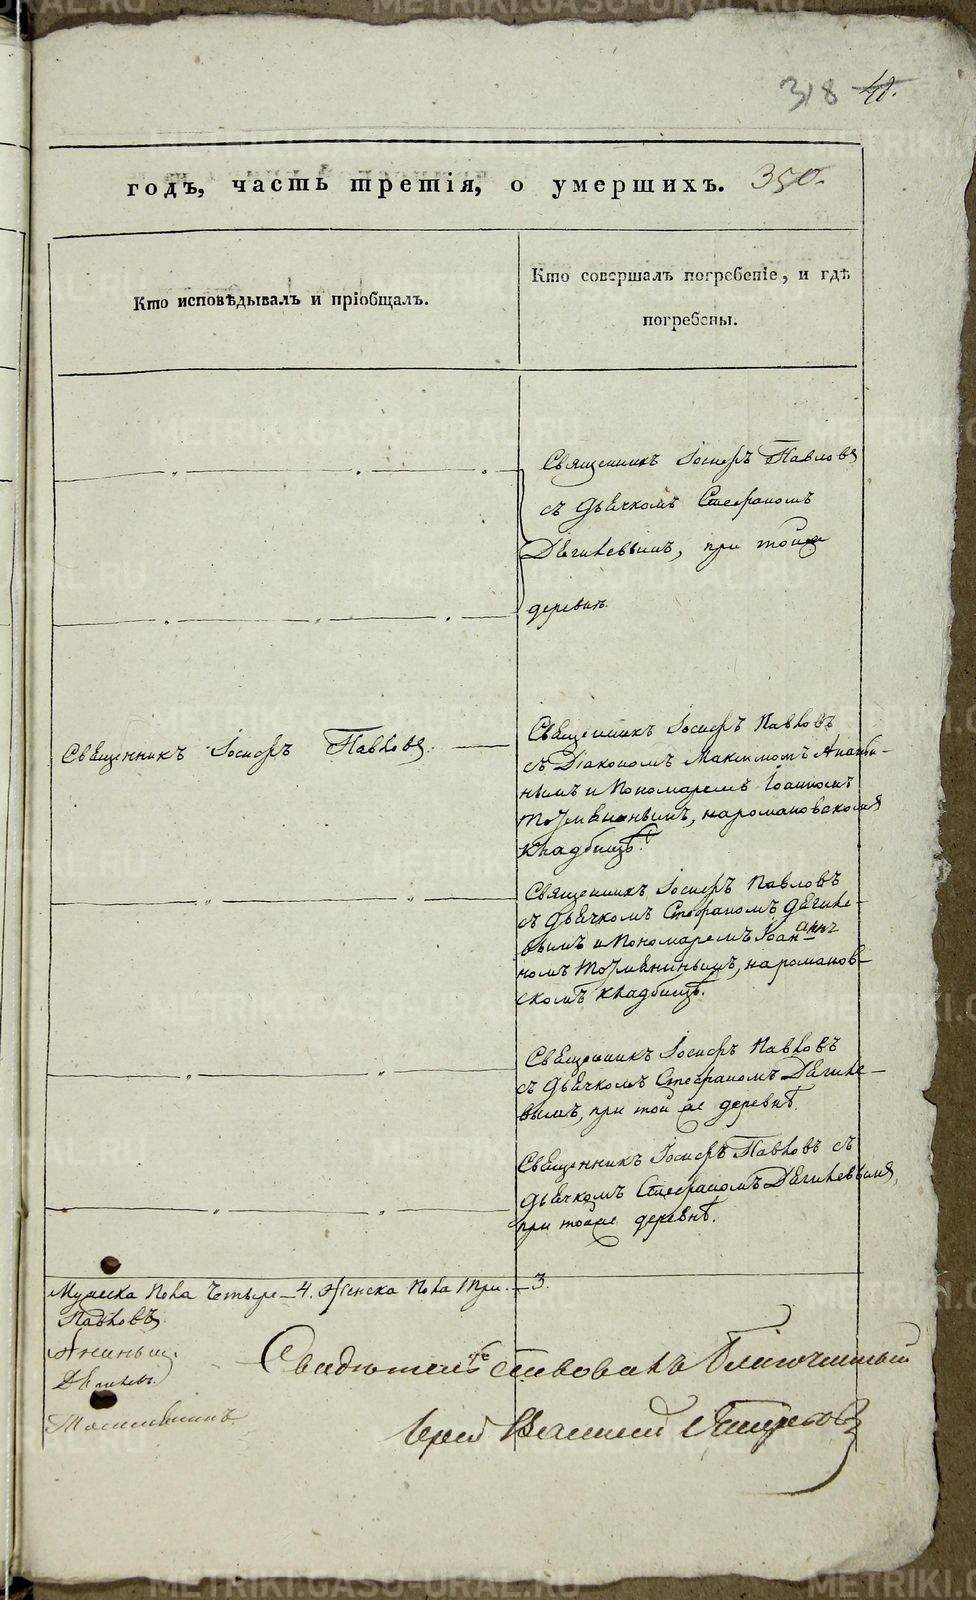 318
годъ, часть третія, о умершихъ. 350.
Кто исповѣдывалъ и пріобщалъ.
Кто совершалъ погребеніе, и гдѣ
погребены.
Священникъ Іосифъ Павловъ
съ дьячкомъ Стефаномъ
Дягилевымъ, при той же
деревнѣ.
Священникъ Іосифъ Павловъ.
Священникъ Іосифъ Павловъ
съ Діакономъ Максимомъ
нымъ и Пономаремъ Іоанномъ
на романовскомъ
кладбищѣ.
Священникъ Іосифъ Павловъ
съ дьячкомъ Стефаномъ Дягиле-
вымъ и Пономаремъ Іоан
номъ на романов-
скомъ кладбищѣ.
Священникъ Іосифъ Павловъ
съ дьячкомъ Стефаномъ Дягиле-
вымъ, при той же деревнѣ.
Священникъ Іосифъ Павловъ съ
дьячкомъ Стефаномъ Дягилевымъ,
при той же деревнѣ.
Мужеска пола четыре - 4. Женска пола три. - 3.
Павловъ
Свидѣтельствовалъ Благочинный
Іерей Василий
METRIKI.GASO-URAL.RU